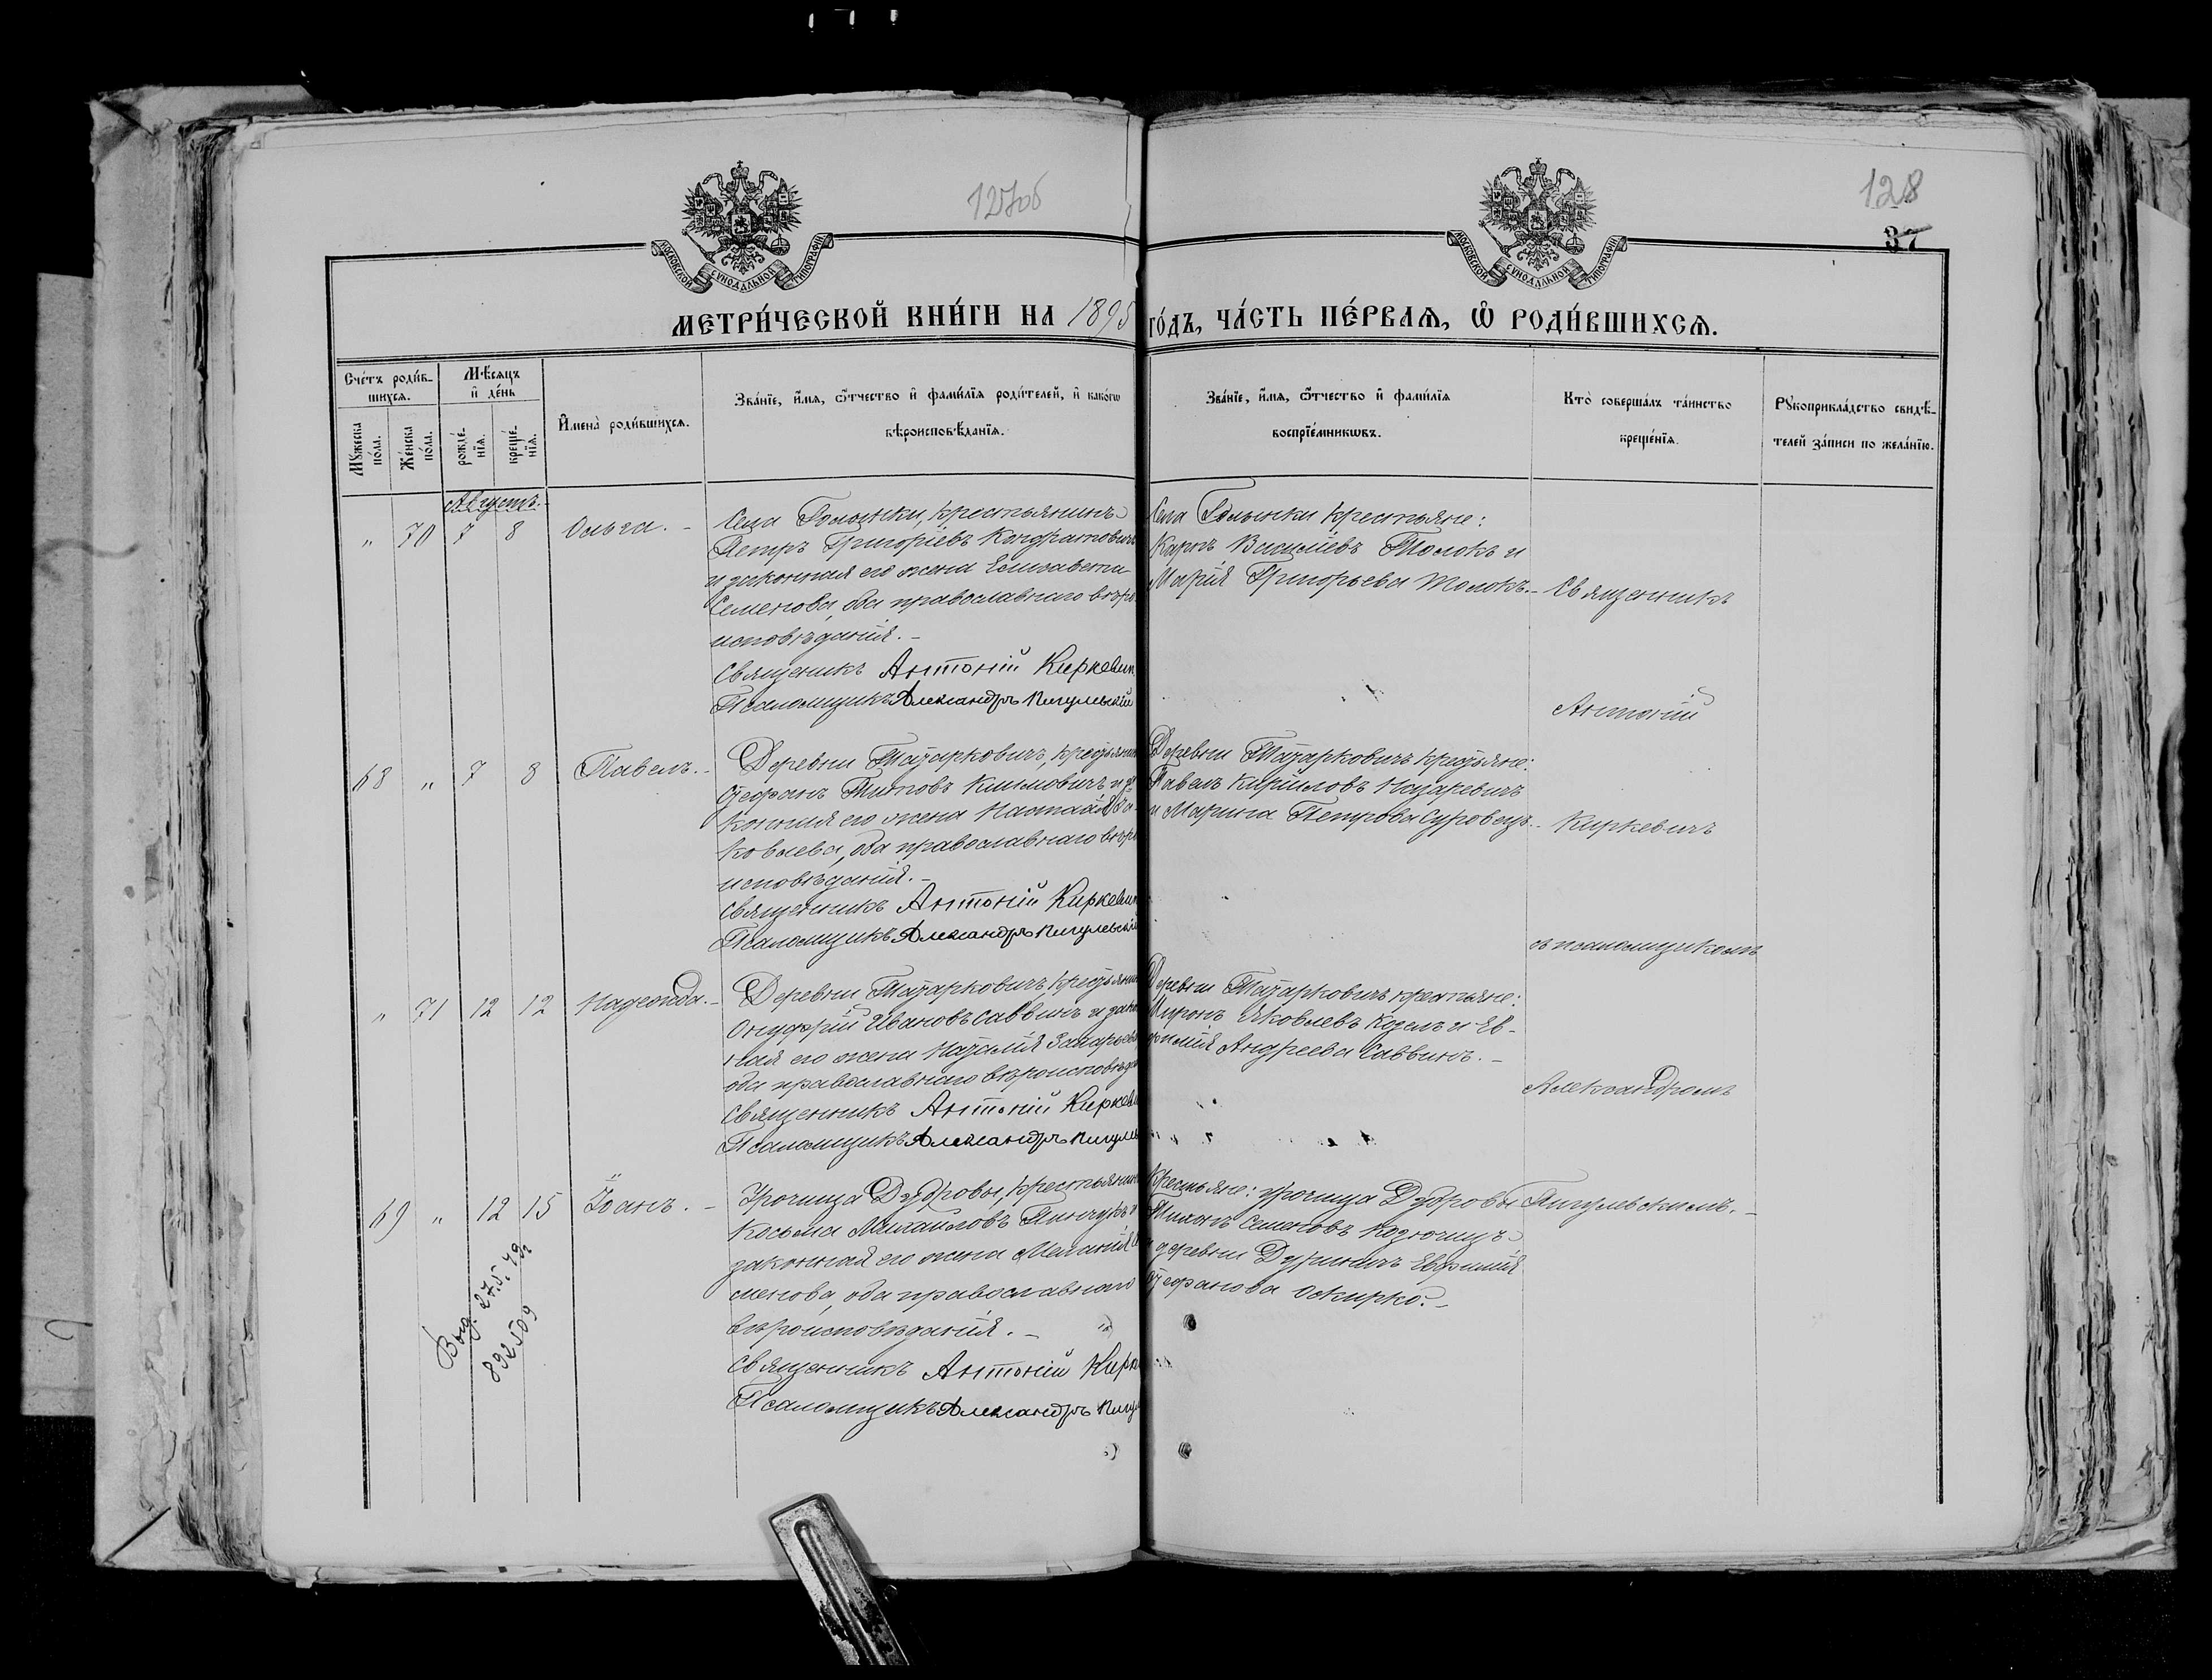 127об
128
37
МОСКОВСКОЙ СѴНОДАЛЬНОЙ ТИПОГРАФІИ
МОСКОВСКОЙ СѴНОДАЛЬНОЙ ТИПОГРАФІИ
МЕТРИ́ЧЕСКОЙ КНИ́ГИ НА 1895 ГО́ДЪ, ЧА́СТЬ ПЕ́РВАѦ, Ѡ҆ РОДИ́ВШИХСѦ.
Сче́тъ роди́в-
шихсѧ.
Мꙋ́жеска по́ла.
Же́нска по́ла.
Мѣ́сѧцъ и҆ де́нь
рожде́-
нїѧ.
креще́-
нїѧ.
И҆мена̀ роди́вшихсѧ.
Зва́нїе, и҆́мѧ, ѻ҆́тчество и҆ фами́лїѧ роди́телей, и҆ како́гѡ
вѣроисповѣ́данїѧ.
Зва́нїе, и҆́мѧ, ѻ҆́тчество и҆ фами́лїѧ
воспрїе́мникѡвъ.
Кто̀ соверша́лъ та́инство
креще́нїѧ.
Рꙋкоприкла́дство свидѣ́-
телей за́писи по жела́нїю.
Августъ.
„ 70 7 8 Ольга. –
Села Голынки, крестьянинъ
Петръ Григоріевъ Кондратовичъ
и законная его жена Елисавета
Семенова, оба православнаго вѣро-
исповѣданія. –
Священникъ Антоній Киркевич
Псаломщикъ Александръ Пигулевскій
Села Голынки крестьяне:
Карпъ Василіевъ Толокъ и
Марія Григорьева Толокъ. –
Священникъ
Антоній
68 „ 7 8 Павелъ. –
Деревни Татарковичъ, крестьянин
Стефанъ Титовъ Климовичъ и за-
конная его жена Наталія Яа-
ковлева, оба православнаго вѣро
исповѣданія. –
Священникъ Антоній Киркевич
Псаломщикъ Александръ Пигулевскій
Деревни Татарковичъ крестьяне:
Павелъ Кирилловъ Назаревичъ
и Марина Петрова Суровецъ. –
Киркевичъ
съ псаломщикомъ
„ 71 12 12 Надежда. –
Деревни Татарковичъ, крестьянин
Онуфрій Ивановъ Саввинъ и закон
ная его жена Наталія Захарьева
оба православнаго вѣроисповѣдан
Священникъ Антоній Киркеви
Псаломщикъ Александръ Пигулев
Деревни Татарковичъ крестьяне:
Миронъ Яковлевъ Козелъ и Ев-
фимія Андреева Саввинъ. –
Александромъ
69 „ 12 15 Іоанъ. –
Урочища Дубровы, крестьянинъ
Косьма Михаиловъ Пинчукъ и
законная его жена Меланія Се
менова, оба православнаго
вѣроисповѣданія. –
Священникъ Антоній Кирк
Псаломщикъ Александръ Пигу
Крестьяне: урочища Дубровы
Тихонъ Семеновъ Козючицъ
и деревни Дурничъ Евфимія
Стефанова Оскирко. –
Пигулевскимъ. –
Выд. 27.5.49г
892509